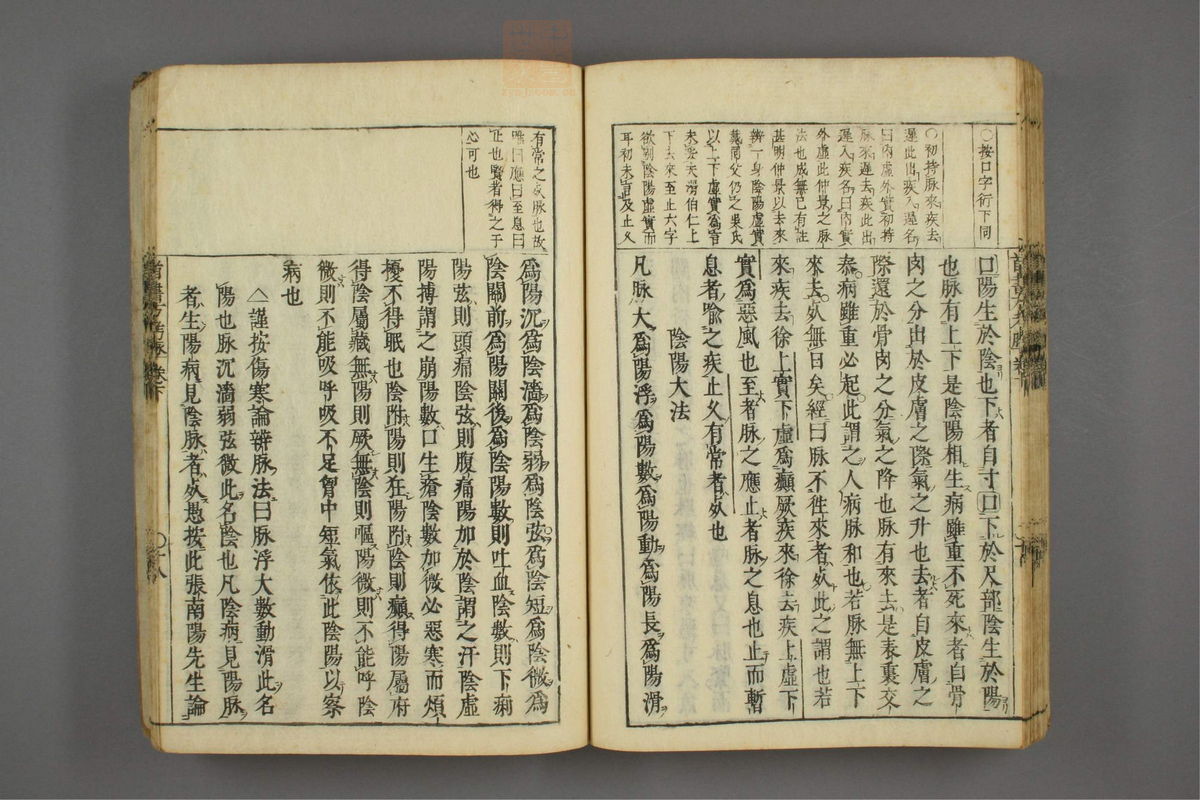 〇按口字衍下同
〇初持脉來疾去
遲此出疾入遲名
曰内虛外實初持
脉來遲去疾此出
遲入疾名曰内實
外虛此仲景之脉
法也成無已有註
甚明仲景以去來
辨一身陰陽虛實
以上下虛實爲言
未妥夫滑伯仁上
下去來至止六字
欲別陰陽虛實而
耳初未言及止久
口陽生於陰也下者自寸口下於尺部陰生於陽
也脉有上下是陰陽相生病雖重不死來者自骨
肉之分出於皮膚之際氣之升也去者自皮膚之
際還於骨肉之分氣之降也脉有來去是表裏交
泰病雖重必起此謂之人病脉和也若脉無上下
來去死無日矣經曰脉不往來者死此之謂也若
來疾去徐上實下虛爲癲厥疾來徐去疾上虛下
實爲惡風也至者脉之應止者脉之息也止而暫
息者喻之疾止久有常者死也
陰陽大法
凡脉大爲陽浮爲陽數爲陽動爲陽長爲陽滑
有常之死脉也故
唯曰應曰至息曰
止也賢者得之于
心可也
爲陽沉爲陰濇爲陰弱爲陰弦爲陰短爲陰微爲
陰關前爲陽關後爲陰陽數則吐血陰數則下痢
陽弦則頭痛陰弦則腹痛陽加於陰謂之汗陰虛
陽搏謂之崩陽數口生瘡陰數加微必惡寒而煩
擾不得眠也陰附陽則狂陽附陰則癲得陽屬府
得陰屬藏無陽則厥無陰則嘔陽微則不能呼陰
微則不能吸呼吸不足胷中短氣依此陰陽以察
病也
△謹按傷寒論辨脉法曰脉浮大數動滑此名
陽也脉沉濇弱弦微此名陰也凡陰病見陽脉
者生陽病見陰脉者死愚按此張南陽先生論